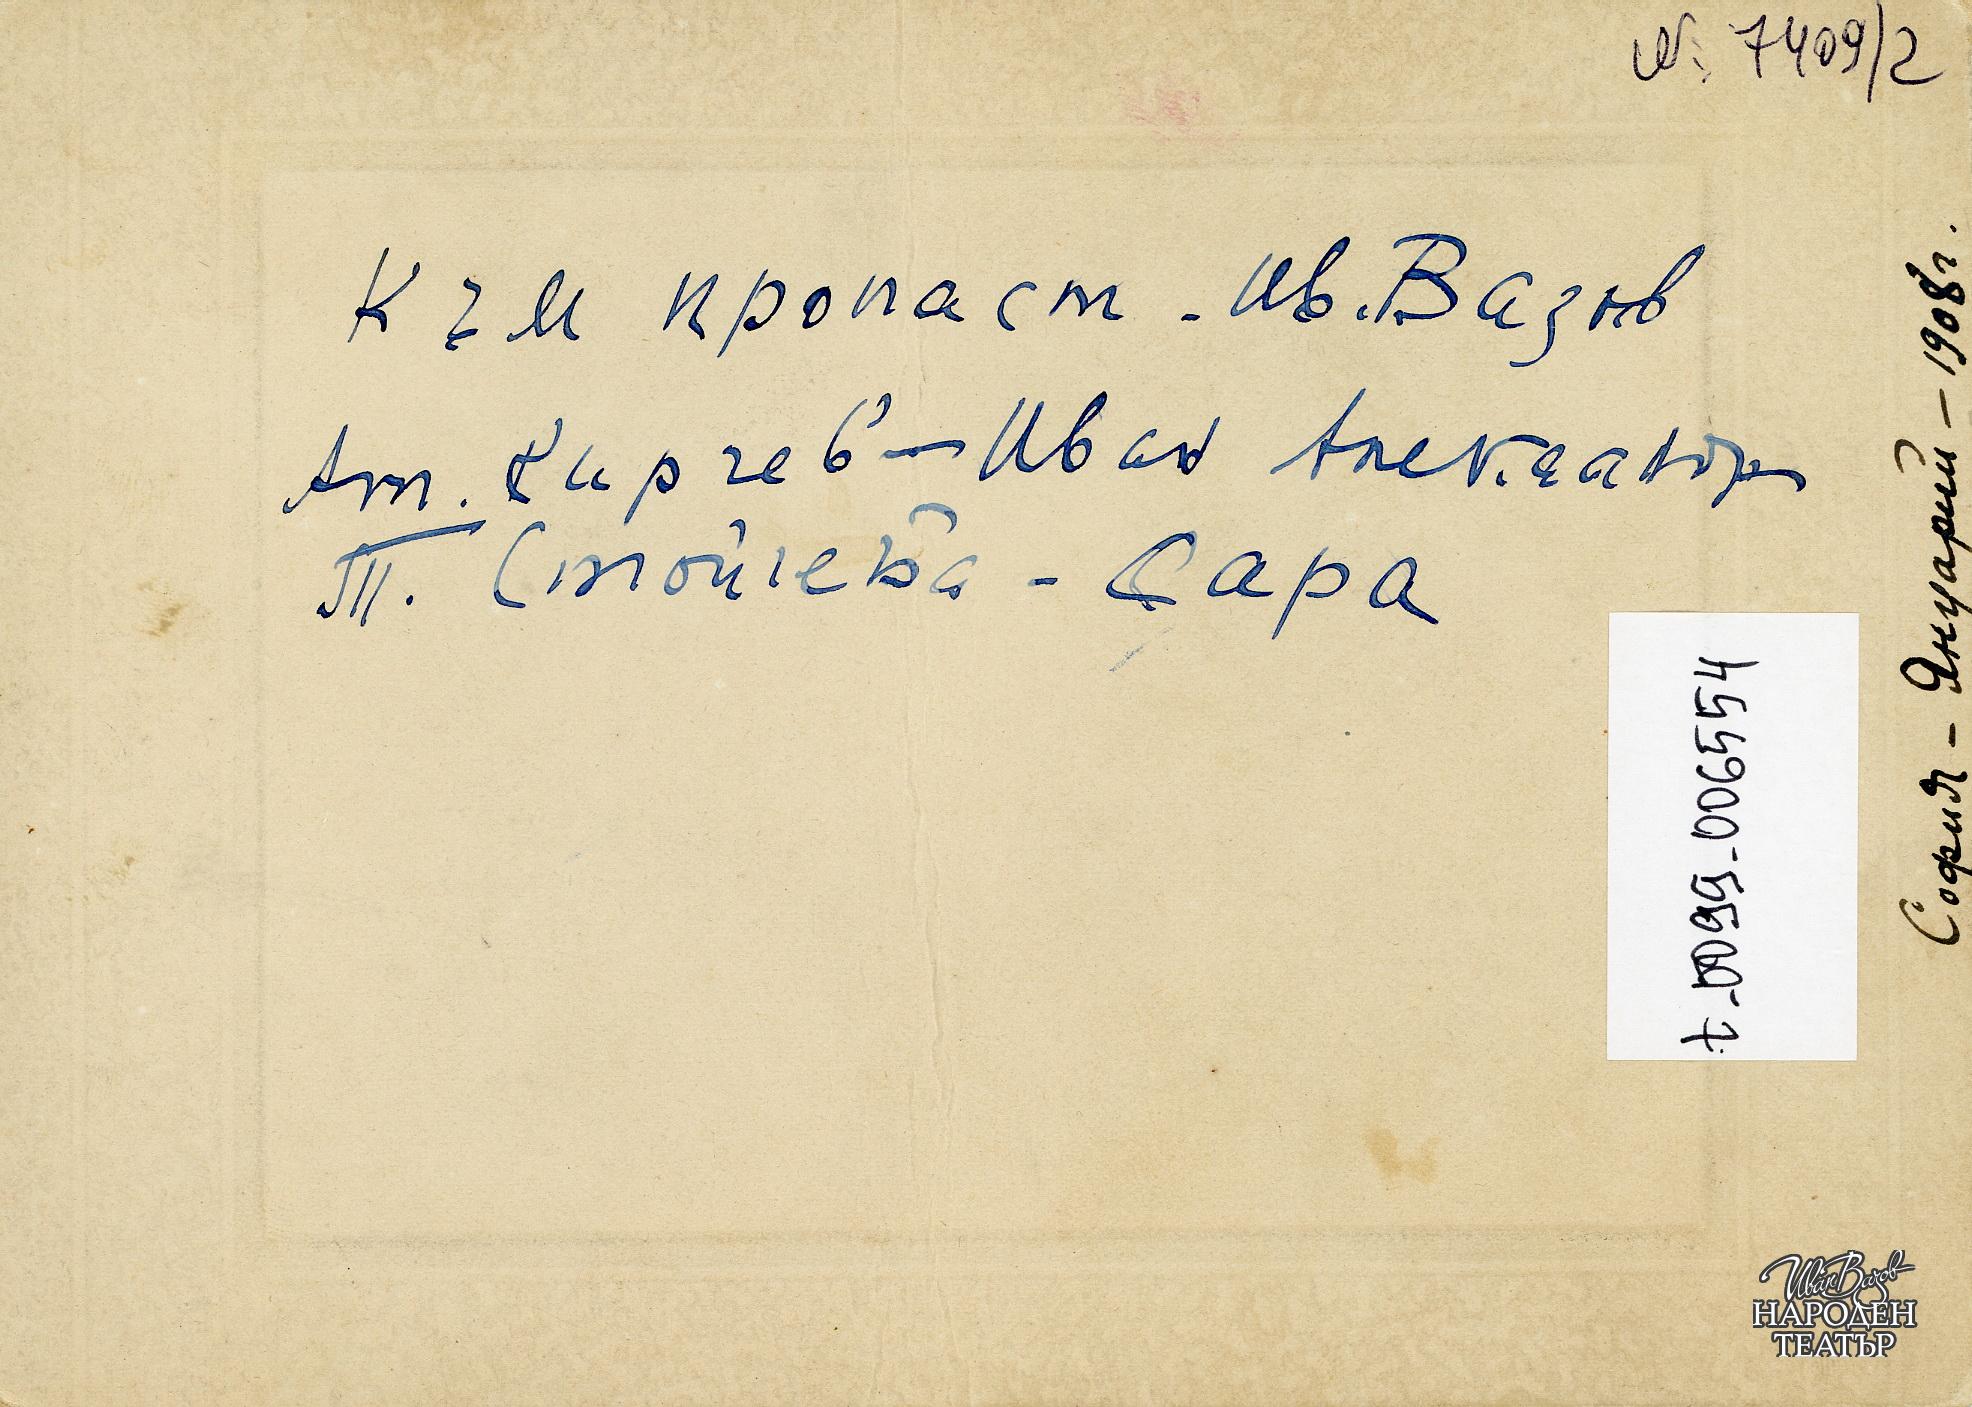 №: 7409/2
Към пропаст - Ив. Вазов
Ат. Кирчев - Иван Александър
Т. Стойчева - Сара
София - Януарий - 1908 г.
t-0099-006554
Иван Вазов
НАРОДЕН
ТЕАТЪР